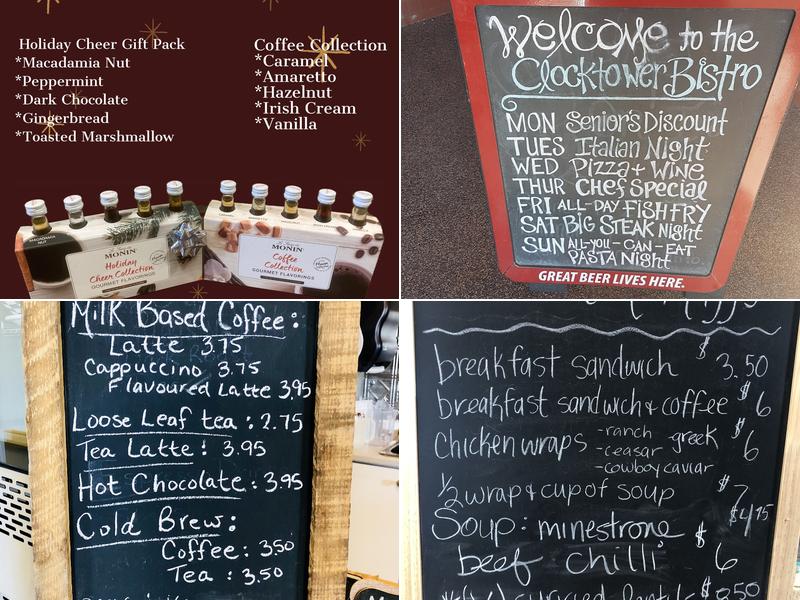 Holiday Cheer Gift Pack
*Macadamia Nut
*Peppermint
*Dark Chocolate
*Gingerbread
*Toasted Marshmallow
Coffee Collection
*Caramel
*Amaretto
*Hazelnut
*Irish Cream
*Vanilla
MONIN
Holiday
Cheer Collection
GOURMET FLAVORINGS
MONIN
Coffee
Collection
GOURMET FLAVORINGS
Welcome to the
Clocktower Bistro
MON Senior's Discount
TUES Italian Night
WED Pizza + Wine
THUR Chef Special
FRI ALL-DAY FISH FRY
SAT BIG STEAK Night
SUN ALL-YOU-CAN-EAT
PASTA Night
GREAT BEER LIVES HERE.
Milk Based Coffee:
Latte 3.75
Cappuccino 3.75
Flavoured Latte 3.95
Loose Leaf tea: 2.75
Tea Latte: 3.95
Hot Chocolate: 3.95
Cold Brew:
Coffee: 3.50
Tea: 3.50
breakfast sandwich $3.50
breakfast sandwich + coffee $6
Chicken wraps -ranch greek $6
-ceasar
-cowboy caviar
1/2 wrap & cup of soup $7
Soup: minestrone $4.75
beef chilli $6